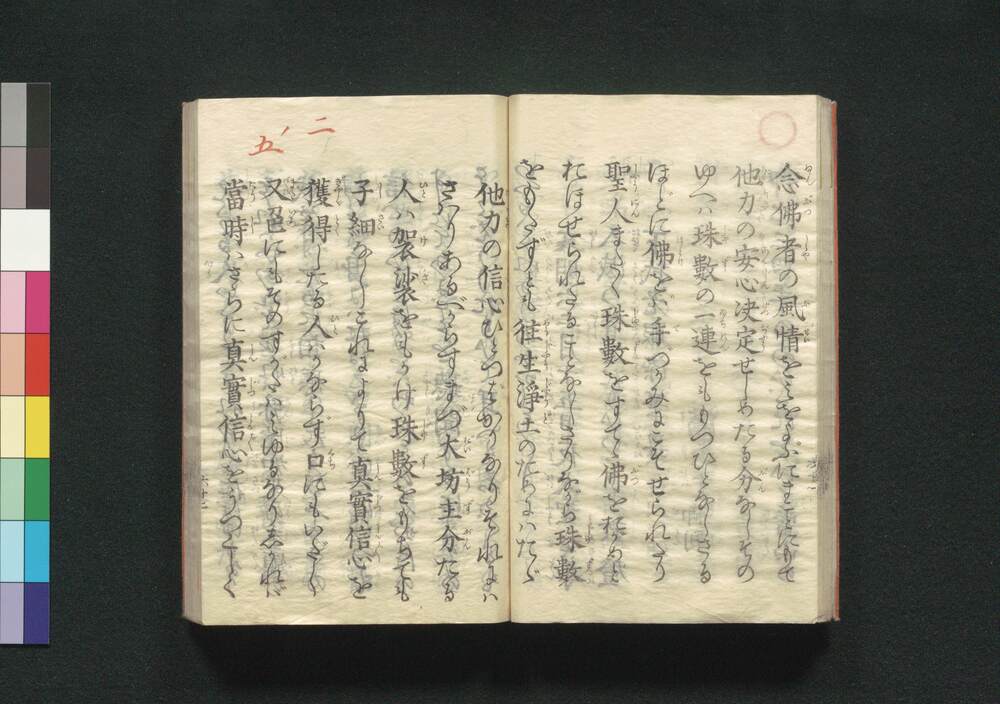 念佛者の風情をみをよぶにまことにもて
他力の安心决定せしめたる分なしその
ゆへハ珠數の一連をもゝつひとなしさる
ほどに佛をバ手づかみにこそせられたり
聖人またく珠數をすてゝ佛をおがめと
おほせられたることなしさりながら珠數
をもたずとも往生淨土のためにハたゞ
二ノ五
他力の信心ひとつばかりなりそれにハ
さハりあるべからすまつ大坊主分たる
人ハ袈裟をもかけ珠數をもちても
子細なしこれによりて真實信心を
獲得したる人ハかならす口にもいだし
又色にもそのすがたハみゆるなりしかれば
當時ハさらに真實信心をうつくしく